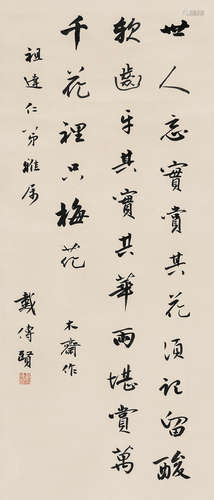 世人忘實賞其花須記留酸
軟齒牙其實其華兩堪賞萬
千花裡只梅花
木齋作
祖達仁弟雅屬
戴傳賢